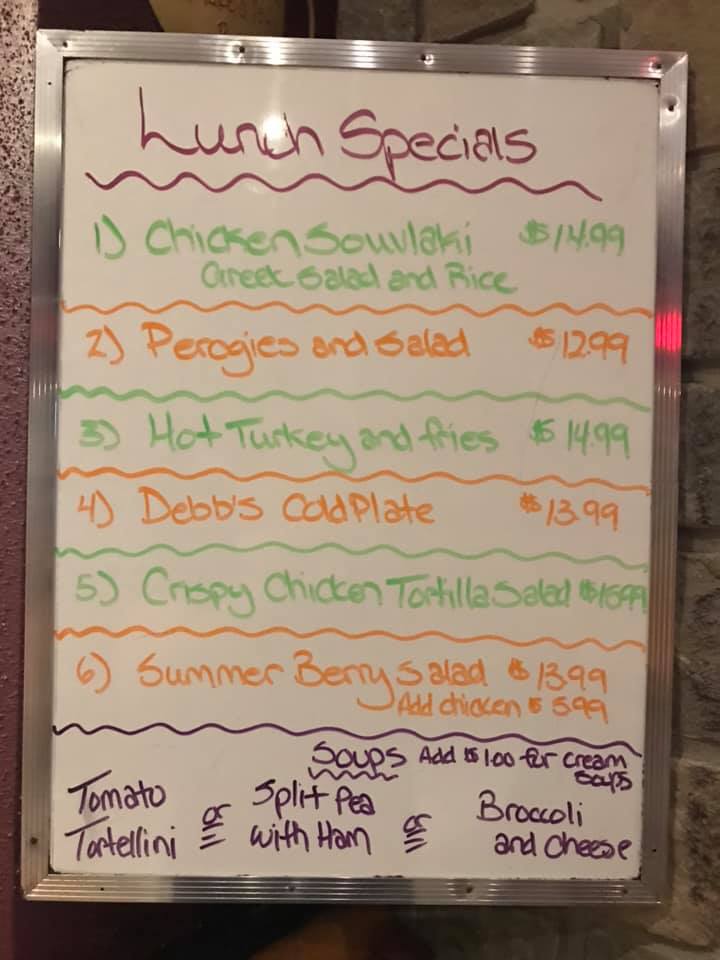 Lunch Specials
1) Chicken Souvlaki $14.99
Greek Salad and Rice
2) Perogies and Salad $12.99
3) Hot Turkey and fries $14.99
4) Debb's Cold Plate $13.99
5) Crispy Chicken Tortilla Salad $15.99
6) Summer Berry Salad $13.99
Add chicken $5.99
Soups Add $1.00 for cream
soups
Tomato
Tortellini
or
Split Pea
with Ham
or
Broccoli
and Cheese